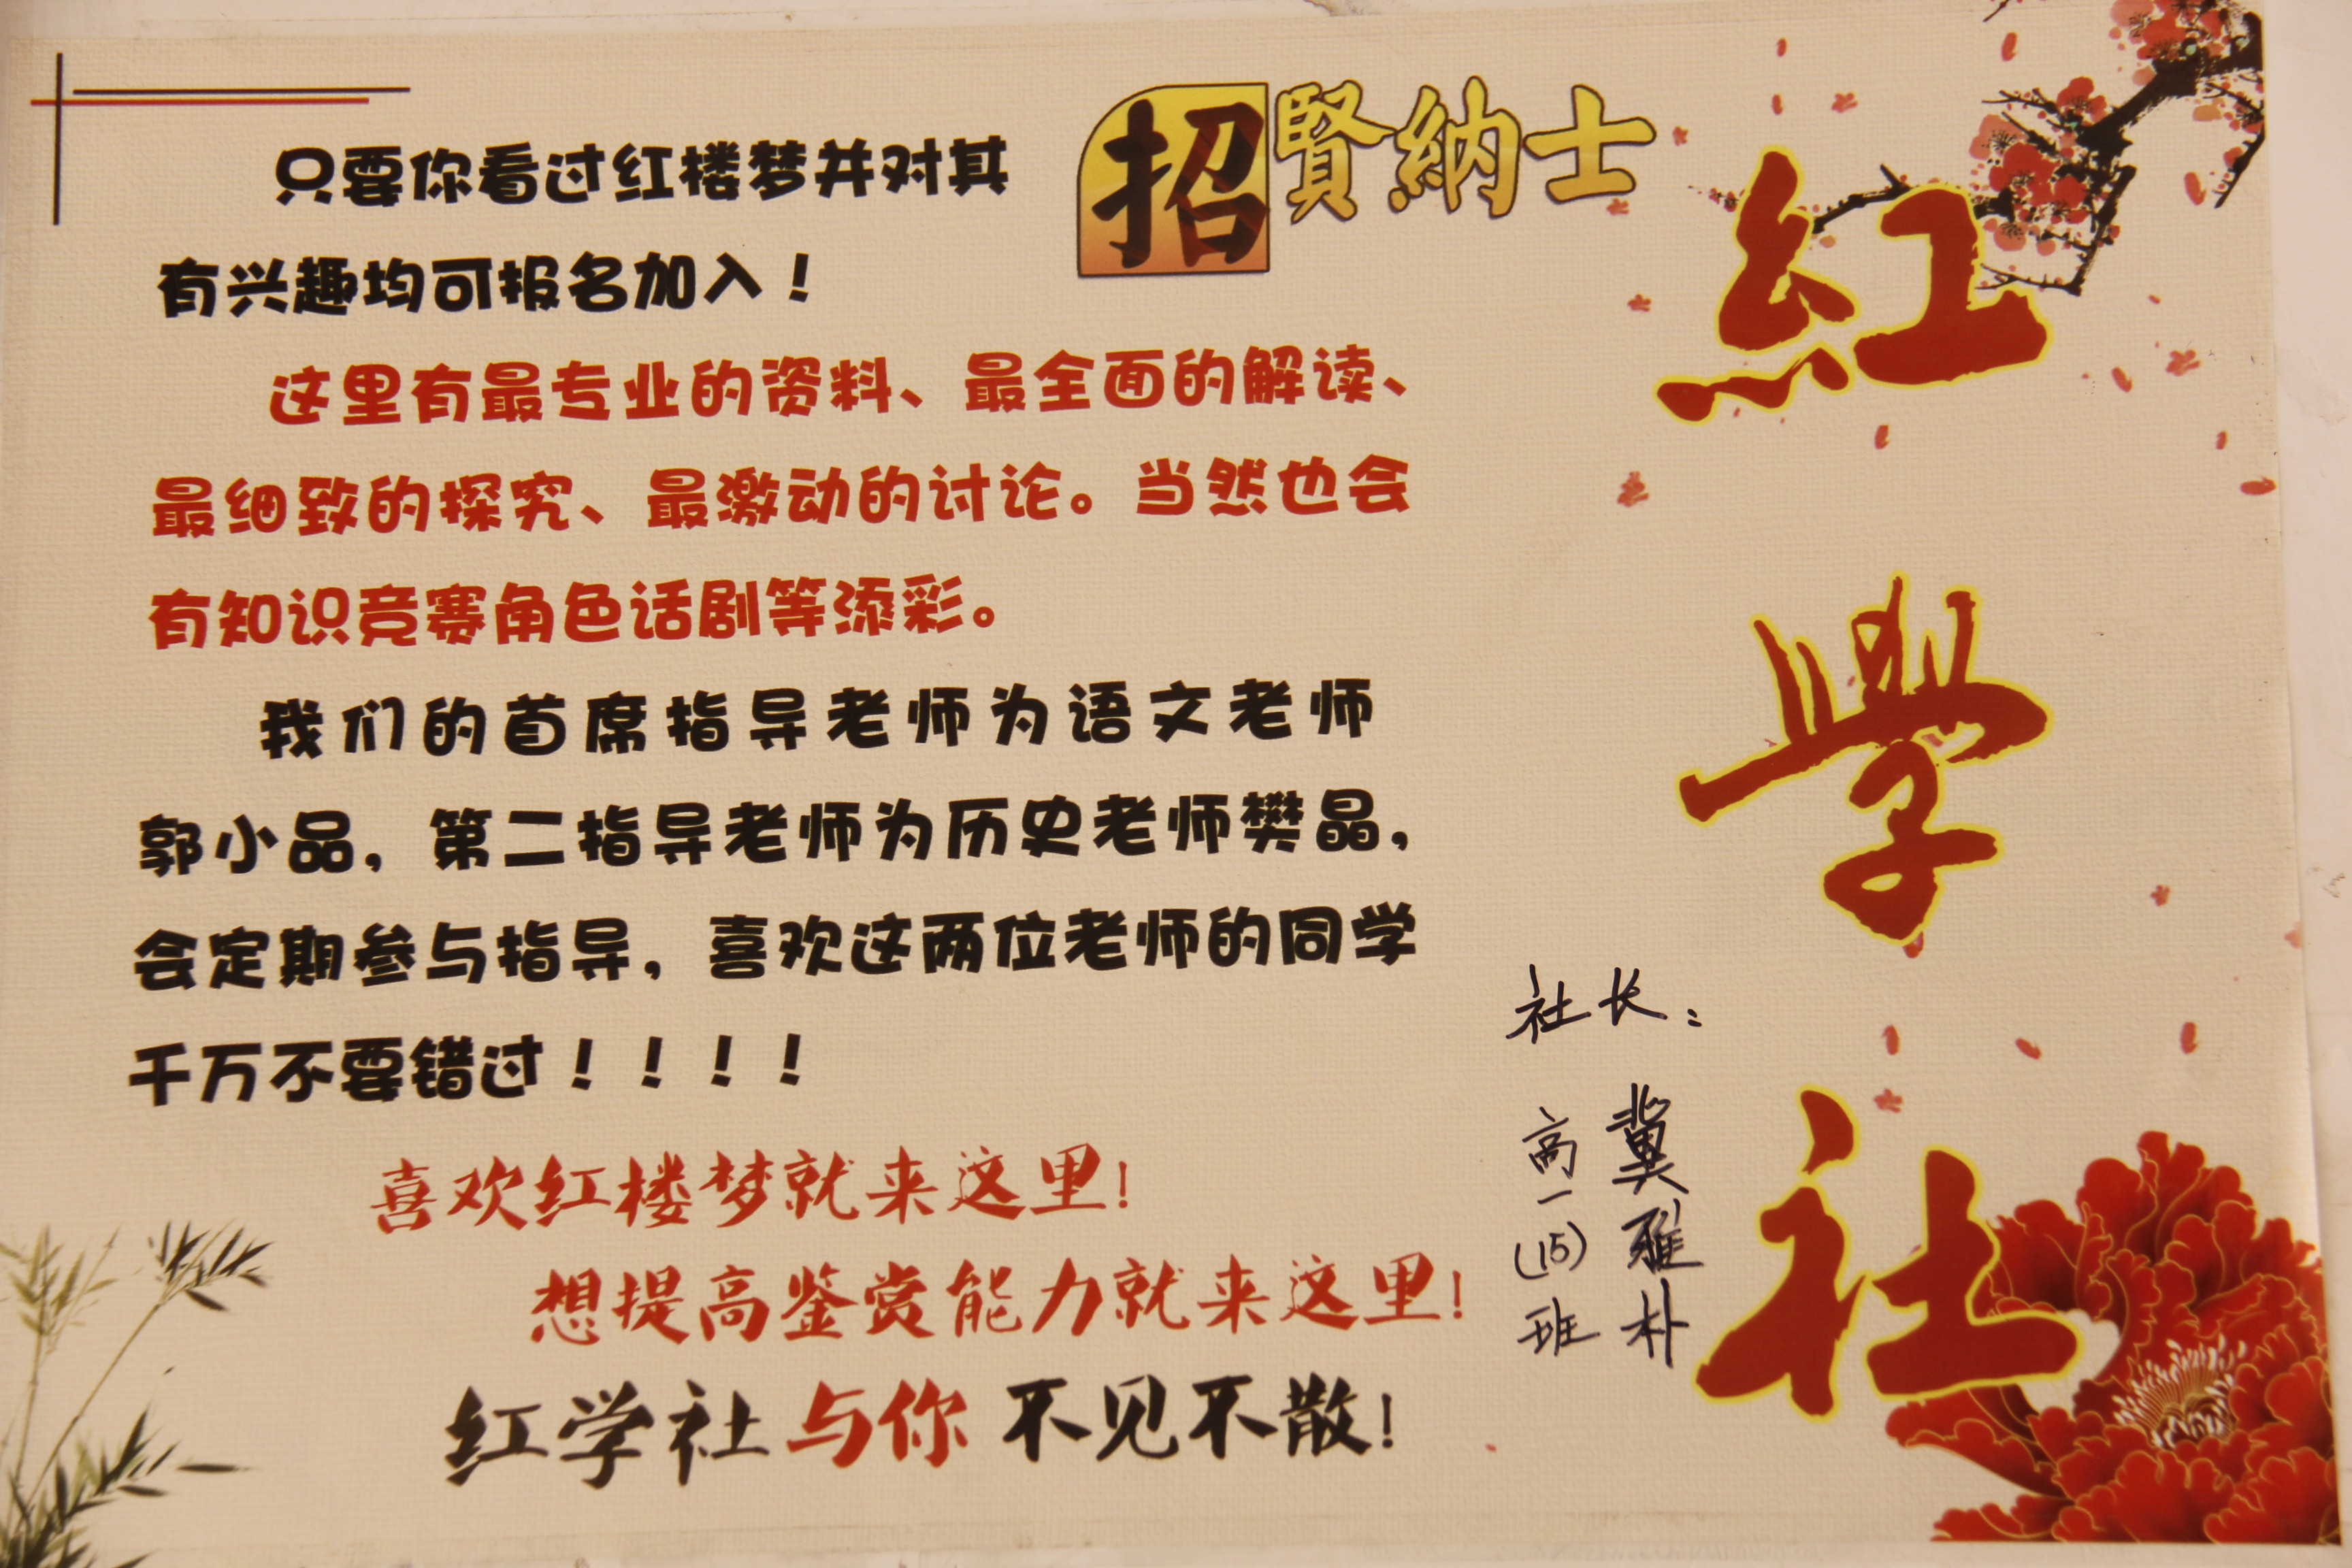 招賢納士
紅學社
只要你看过红楼梦并对其
有兴趣均可报名加入！
这里有最专业的资料、最全面的解读、
最细致的探究、最激动的讨论。当然也会
有知识竞赛角色话剧等添彩。
我们的首席指导老师为语文老师
郭小品，第二指导老师为历史老师樊晶，
会定期参与指导，喜欢这两位老师的同学
千万不要错过！！！！
喜欢红楼梦就来这里！
想提高鉴赏能力就来这里！
红学社与你不见不散！
社长：
冀雅朴
高一(15)班